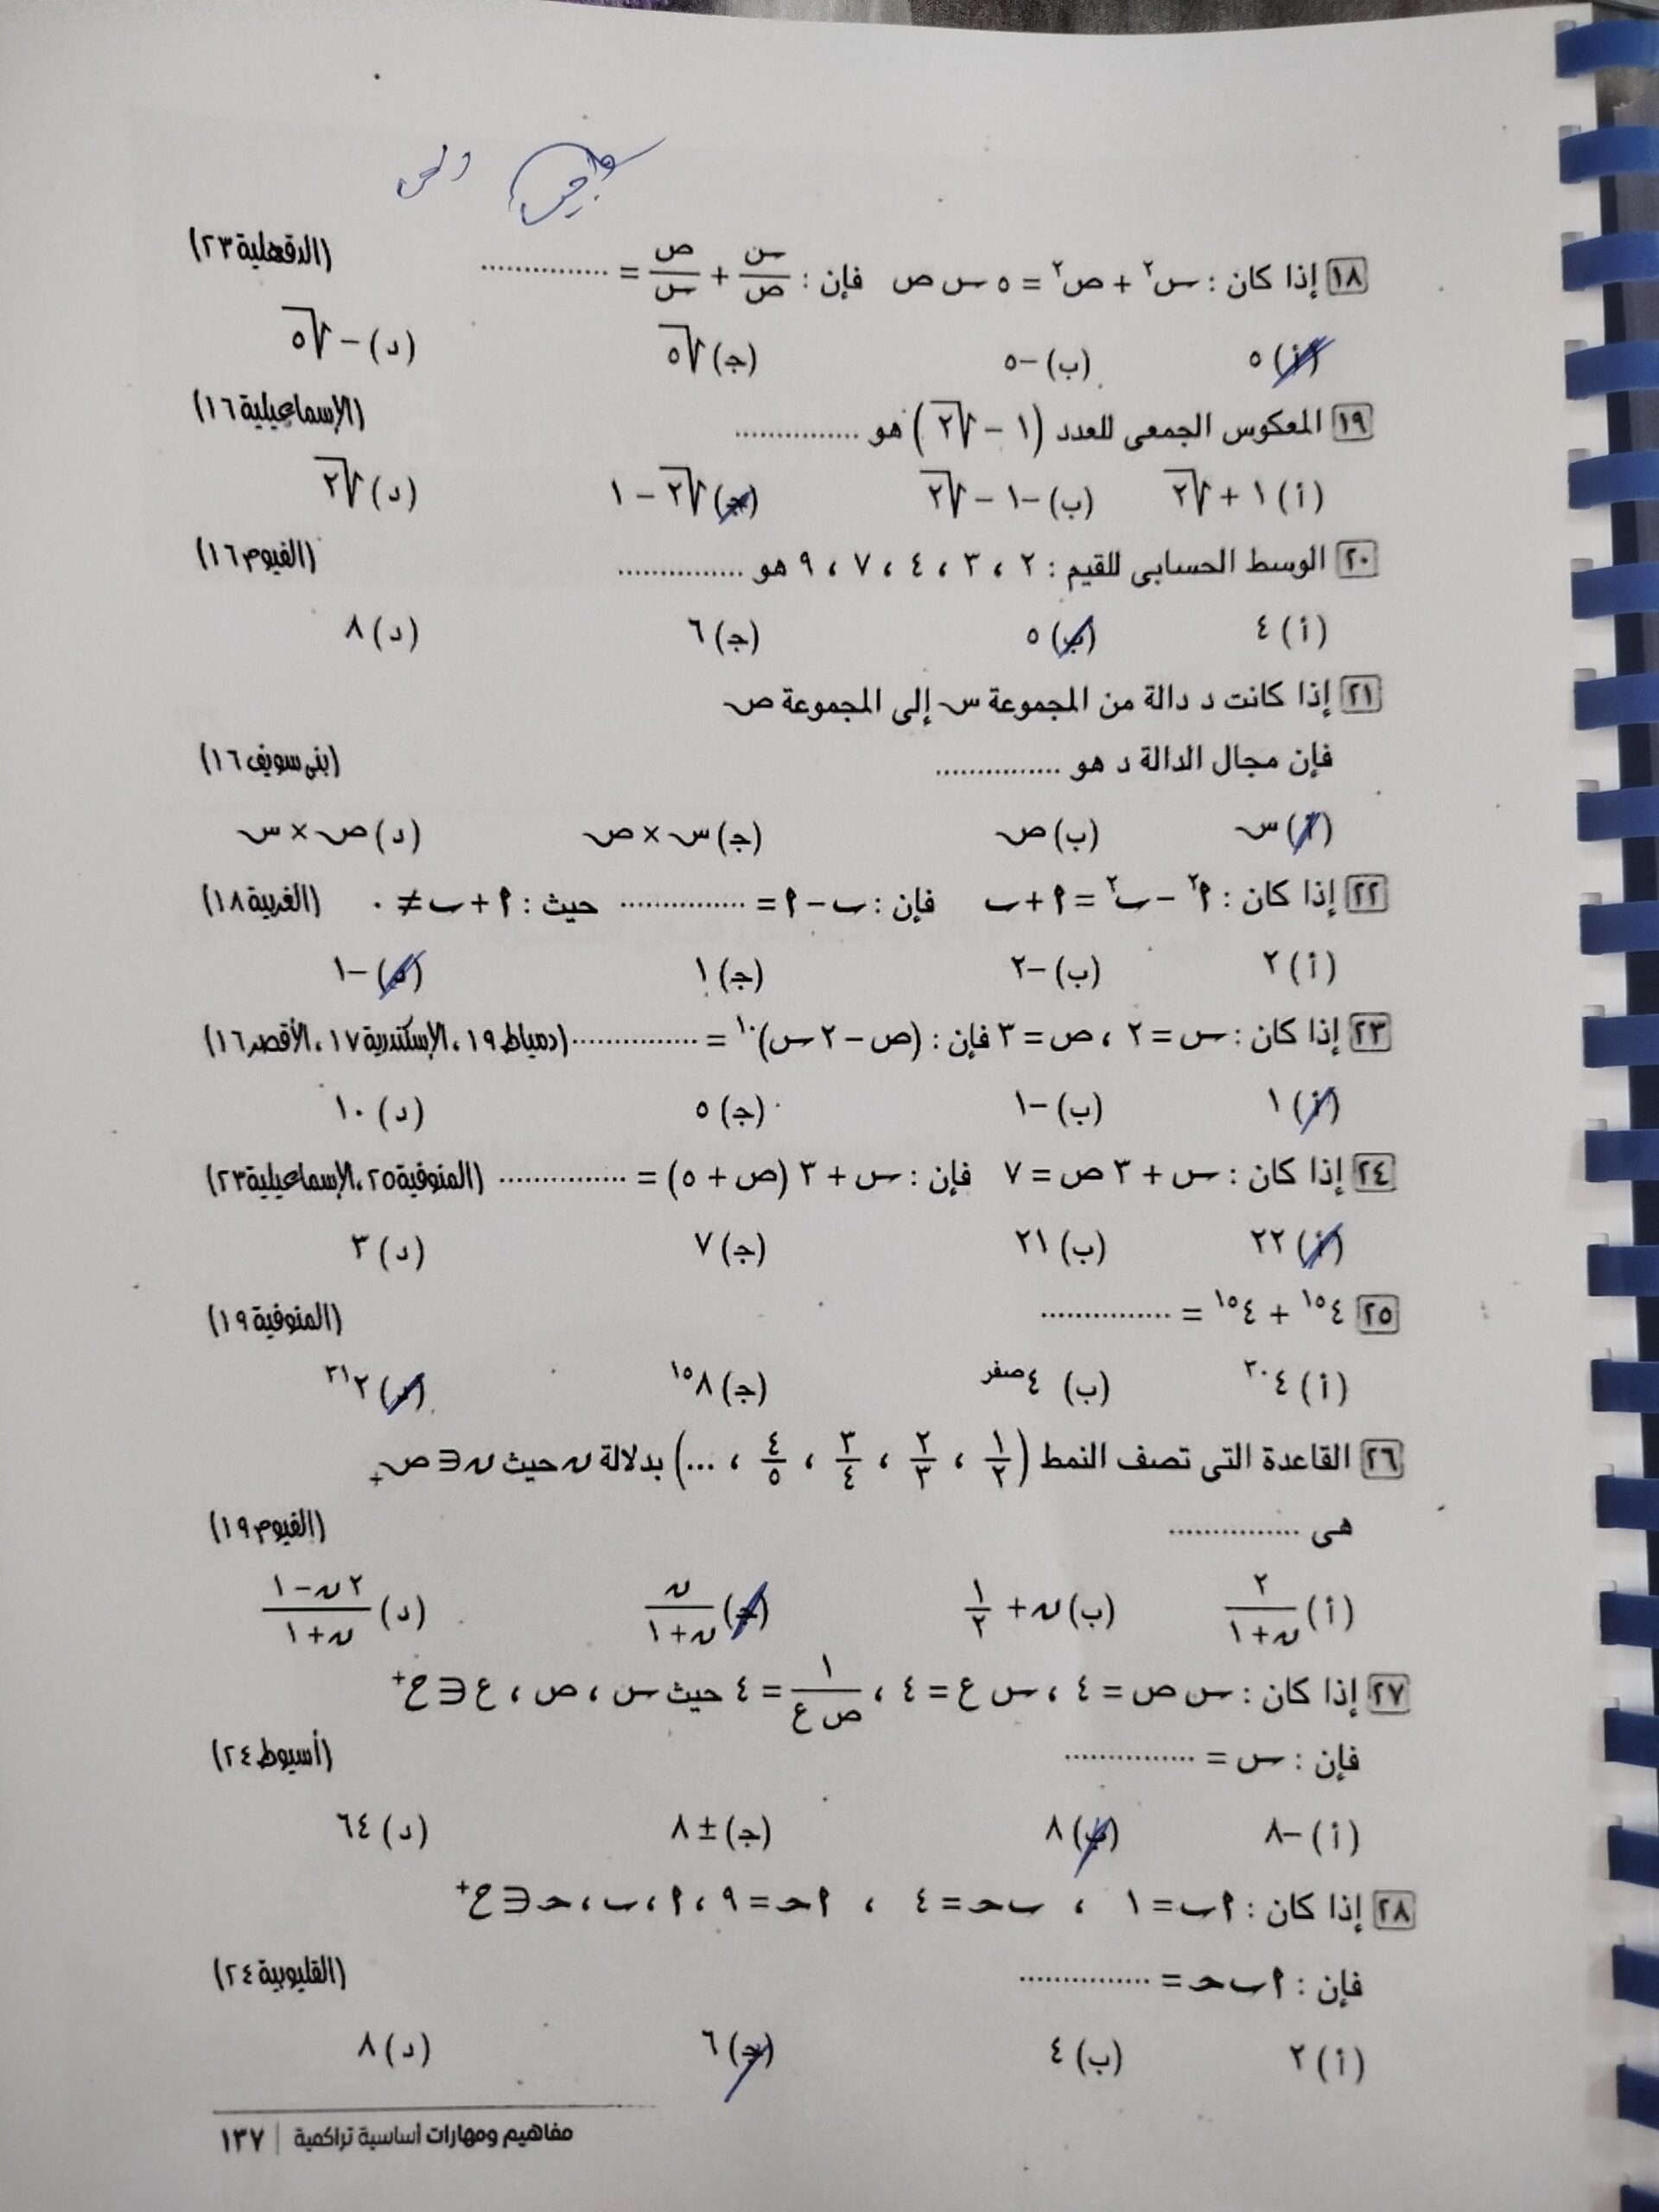 واجب
١٨ إذا كان : س٢ + ص٢ = ٥ س ص فإن : س/ص + ص/س = ............... (الدقهلية ٢٣)
(أ) ٥ (ب) −٥ (ج) √٥ (د) −√٥
١٩ المعكوس الجمعى للعدد (١ − √٢) هو ............... (الإسماعيلية ١٦)
(أ) ١ + √٢ (ب) −١ − √٢ (ج) √٢ − ١ (د) √٢
٢٠ الوسط الحسابى للقيم : ٢ ، ٣ ، ٤ ، ٧ ، ٩ هو ............... (الفيوم ١٦)
(أ) ٤ (ب) ٥ (ج) ٦ (د) ٨
٢١ إذا كانت د دالة من المجموعة س إلى المجموعة ص
فإن مجال الدالة د هو ............... (بنى سويف ١٦)
(أ) س (ب) ص (ج) س × ص (د) ص × س
٢٢ إذا كان : ٢٩ − ب٢ = ٩ + ب فإن : ب − ٩ = ............... حيث : ٩ + ب ≠ ٠ (الغربية ١٨)
(أ) ٢ (ب) −٢ (ج) ١ (د) −١
٢٣ إذا كان : س = ٢ ، ص = ٣ فإن : (ص − ٢ س)١٠ = ............... (دمياط ١٩ ، الإسكندرية ١٧ ، الأقصر ١٦)
(أ) ١ (ب) −١ (ج) ٥ (د) ١٠
٢٤ إذا كان : س + ٣ ص = ٧ فإن : س + ٣ (ص + ٥) = ............... (المنوفية ٢٥ ، الإسماعيلية ٢٣)
(أ) ٢٢ (ب) ٢١ (ج) ٧ (د) ٣
٢٥ ٤١٥ + ٤١٥ = ............... (المنوفية ١٩)
(أ) ٤٣٠ (ب) ٤صفر (ج) ٨١٥ (د) ٢٣١
٢٦ القاعدة التى تصف النمط (١/٢ ، ٢/٣ ، ٣/٤ ، ٤/٥ ، ...) بدلالة ن حيث ن ∈ ص+
هى ............... (الفيوم ١٩)
(أ) ٢/(ن + ١) (ب) ن + ١/٢ (ج) ن/(ن + ١) (د) (٢ ن − ١)/(ن + ١)
٢٧ إذا كان : س ص = ٤ ، س ع = ٤ ، ١/(ص ع) = ٤ حيث س ، ص ، ع ∈ ح+
فإن : س = ............... (أسيوط ٢٤)
(أ) −٨ (ب) ٨ (ج) ± ٨ (د) ٦٤
٢٨ إذا كان : ٩ ب = ١ ، ب ح = ٤ ، ٩ ح = ٩ ، ٩ ، ب ، ح ∈ ح+
فإن : ٩ ب ح = ............... (القليوبية ٢٤)
(أ) ٢ (ب) ٤ (ج) ٦ (د) ٨
مفاهيم ومهارات أساسية تراكمية | ١٣٧